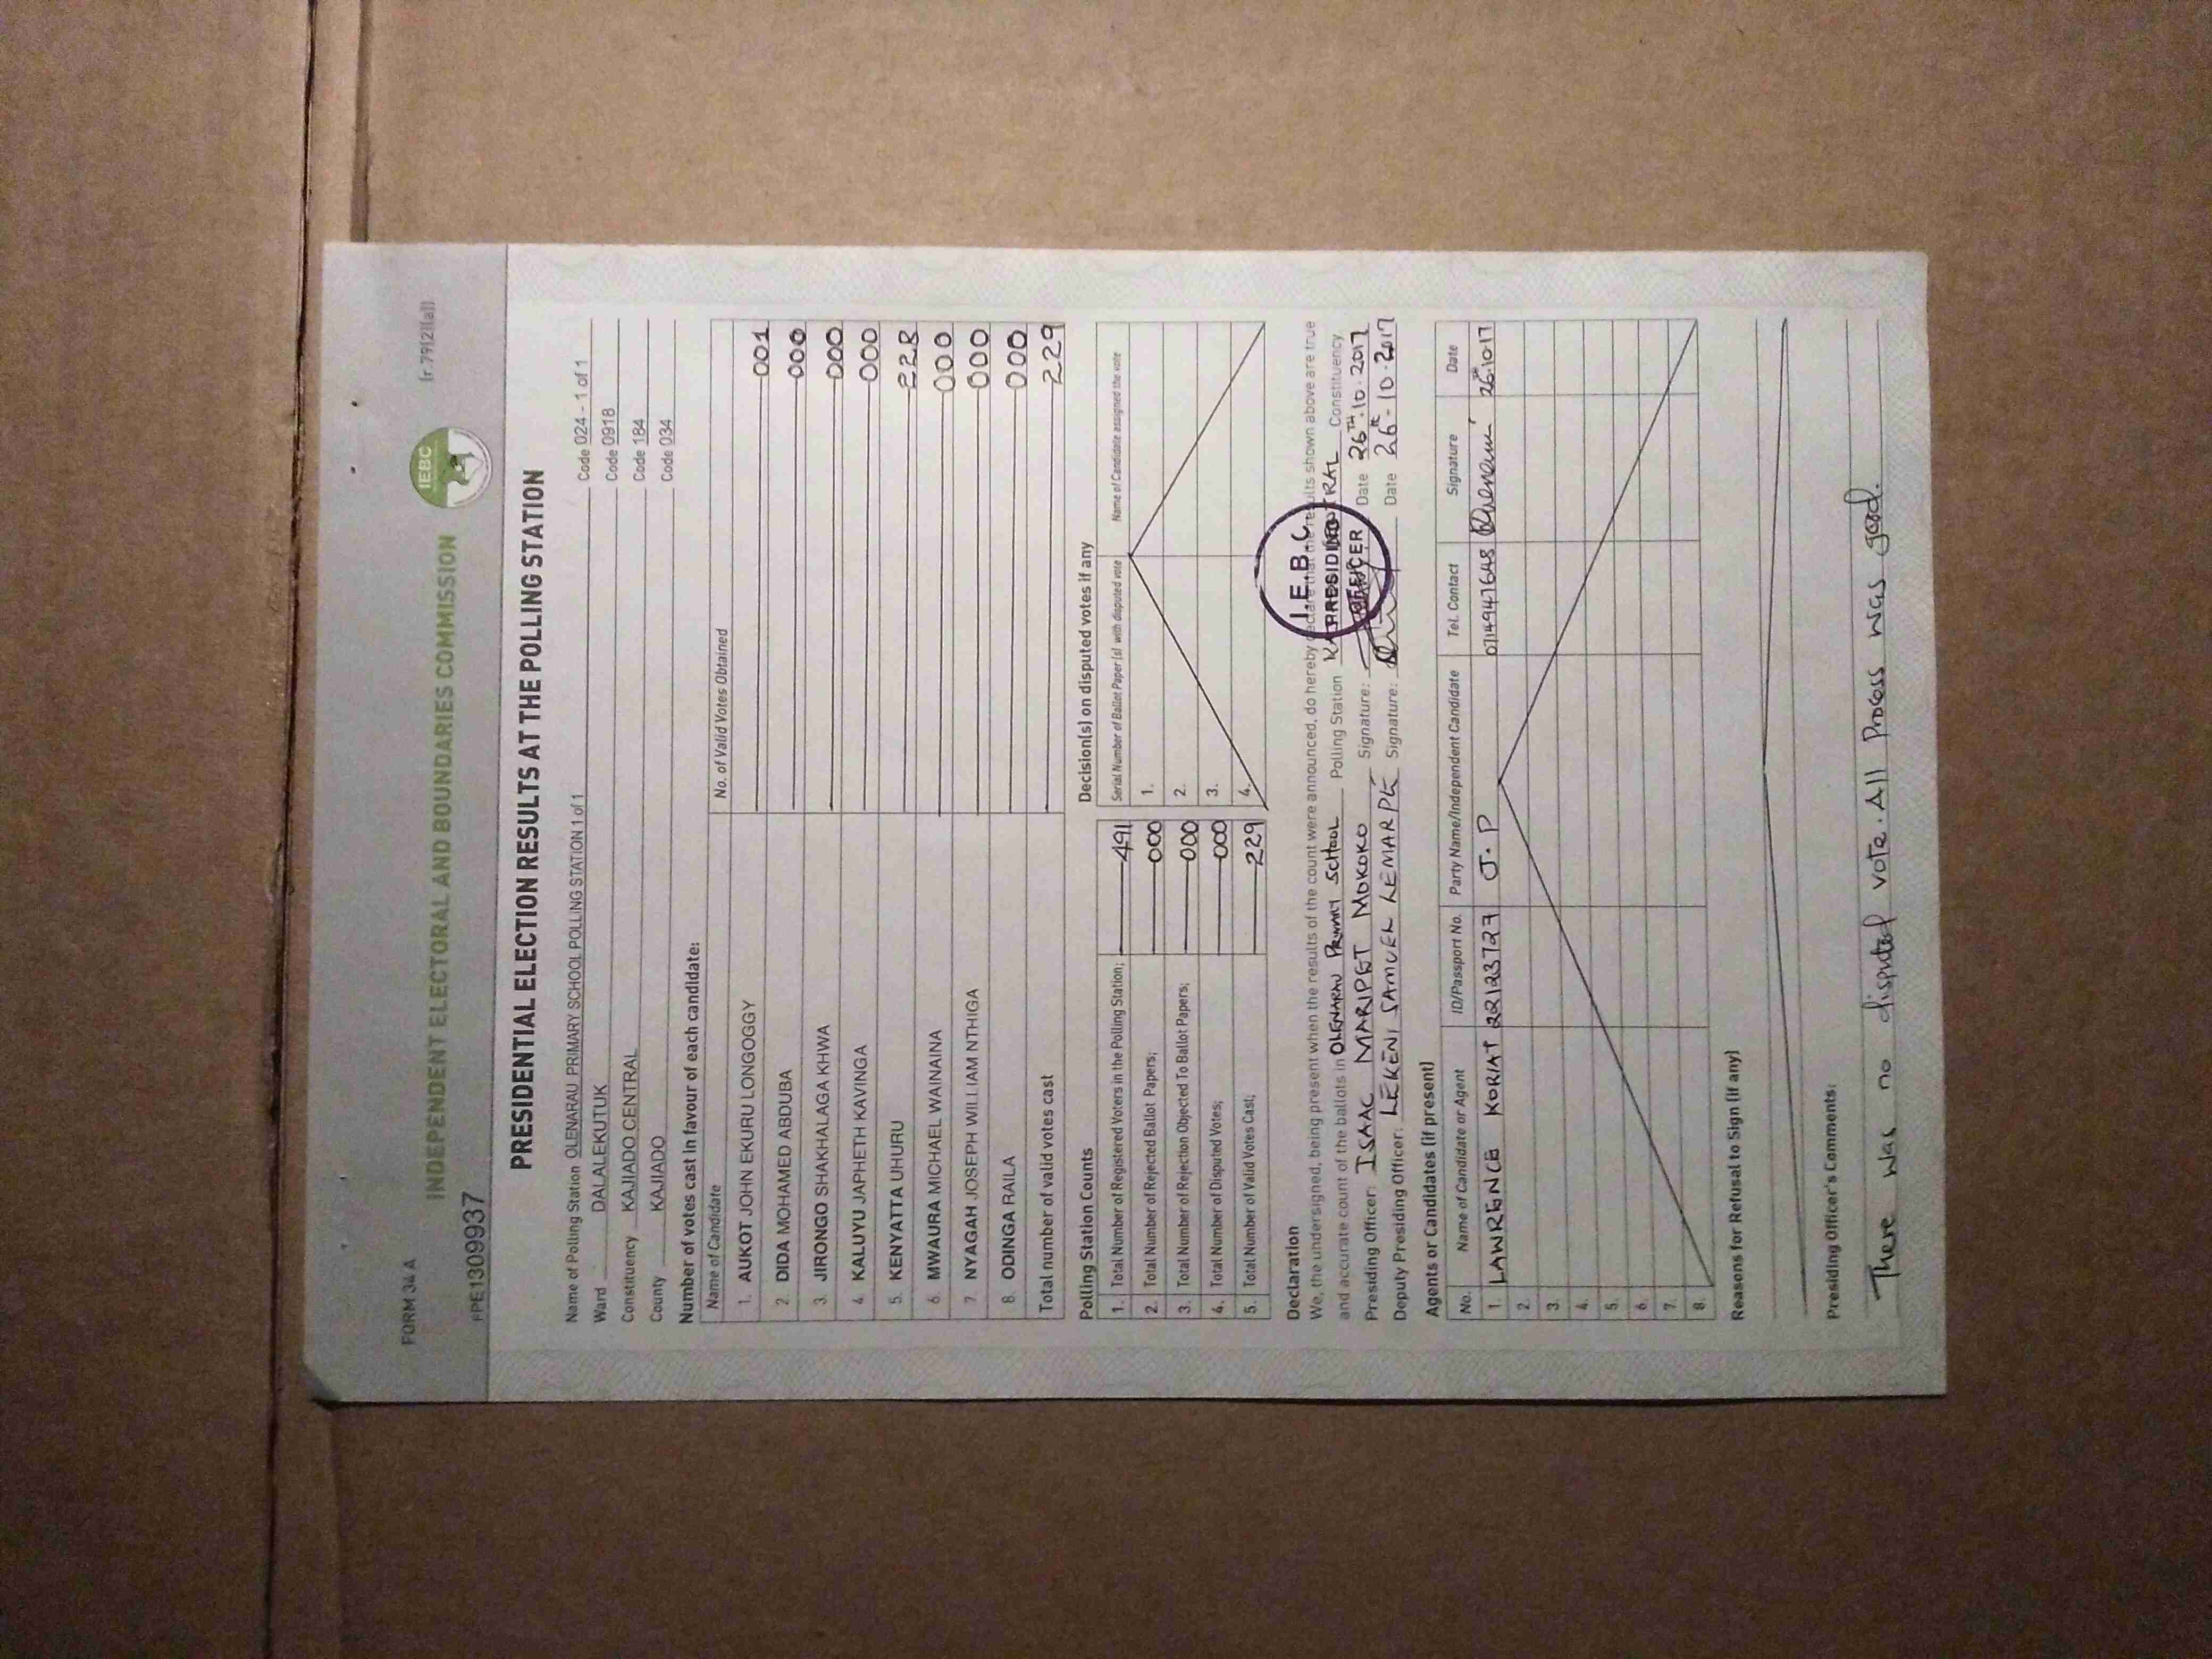 FORM 34 A
(r 79(2)(a))
INDEPENDENT ELECTORAL AND BOUNDARIES COMMISSION
IEBC
PPE1309937
PRESIDENTIAL ELECTION RESULTS AT THE POLLING STATION
Name of Polling Station OLENARAU PRIMARY SCHOOL POLLING STATION 1 of 1 Code 024 - 1 of 1
Ward DALALEKUTUK Code 0918
Constituency KAJIADO CENTRAL Code 184
County KAJIADO Code 034
Number of votes cast in favour of each candidate:
Name of Candidate No. of Valid Votes Obtained
1. AUKOT JOHN EKURU LONGOGGY 001
2. DIDA MOHAMED ABDUBA 000
3. JIRONGO SHAKHALAGA KHWA 000
4. KALUYU JAPHETH KAVINGA 000
5. KENYATTA UHURU 228
6 MWAURA MICHAEL WAINAINA 000
7. NYAGAH JOSEPH WILLIAM NTHIGA 000
8. ODINGA RAILA 000
Total number of valid votes cast 229
Polling Station Counts
1. Total Number of Registered Voters in the Polling Station; 491
2. Total Number of Rejected Ballot Papers; 000
3. Total Number of Rejection Objected To Ballot Papers; 000
4. Total Number of Disputed Votes; 000
5. Total Number of Valid Votes Cast; 229
Decision(s) on disputed votes if any
Serial Number of Ballot Paper (s) with disputed vote Name of Candidate assigned the vote
1.
2.
3.
4.
Declaration
We, the undersigned, being present when the results of the count were announced, do hereby declare that the results shown above are true
and accurate count of the ballots in OLENARAU PRIMARY SCHOOL Polling Station KAJIADO CENTRAL Constituency
I.E.B.C
PRESIDING
OFFICER
Presiding Officer: ISAAC MARIPET MOKOKO Signature: Date 26TH.10.2017
Deputy Presiding Officer: LEKENI SAMUEL LEMARPE Signature: Date 26th-10-2017
Agents or Candidates (if present)
No. Name of Candidate or Agent ID/Passport No. Party Name/Independent Candidate Tel. Contact Signature Date
1. LAWRENCE KORIAT 22123727 J.P 0714947648 26th.10.17
2.
3.
4.
5.
6.
7.
8.
Reasons for Refusal to Sign (if any)
Presiding Officer's Comments:
There was no disputed vote. All Process was good.